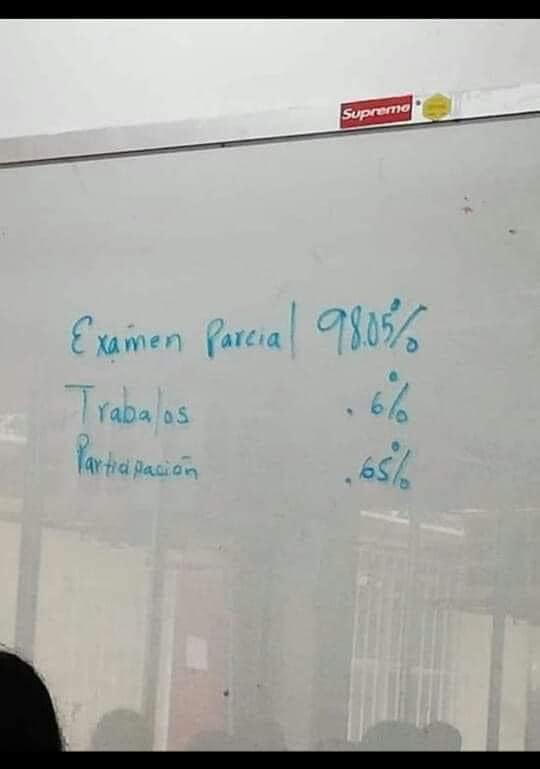 Supreme
Exámen Parcial 98.05%
Trabajos .6%
Participación .65%